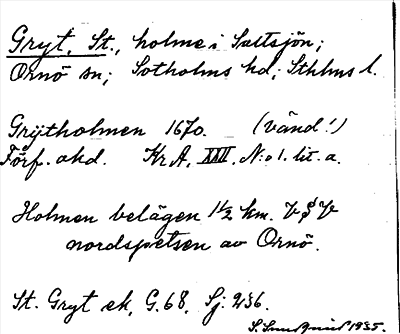 Gryt, St., holme i Saltsjön;
Ornö sn; Sotholms hd; Sthlms l.
Grijtholmen 1670. (vänd!)
Förf. okd. Kr A. XXII. N:o 1. lit. a.
Holmen belägen 1 1/2 km. V
nordspetsen av Ornö.
St. Gryt ek, G. 68, Sj. 236.
1935.